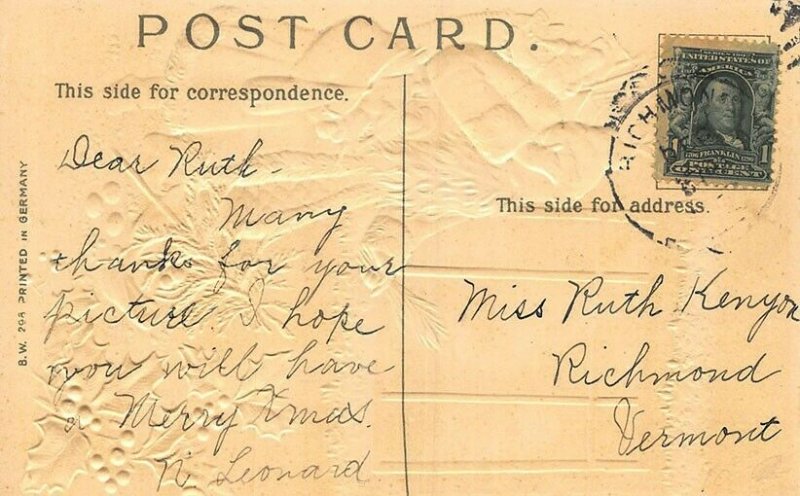 POST CARD.
This side for correspondence.
Dear Ruth.
Many
thanks for your
picture. I hope
you will have
a Merry Xmas.
N. Leonard
B.W. 298 PRINTED IN GERMANY
UNITED STATES OF
AMERICA
FRANKLIN
1
ONE CENT
RICHMON
This side for address.
Miss Ruth Kenyon
Richmond
Vermont